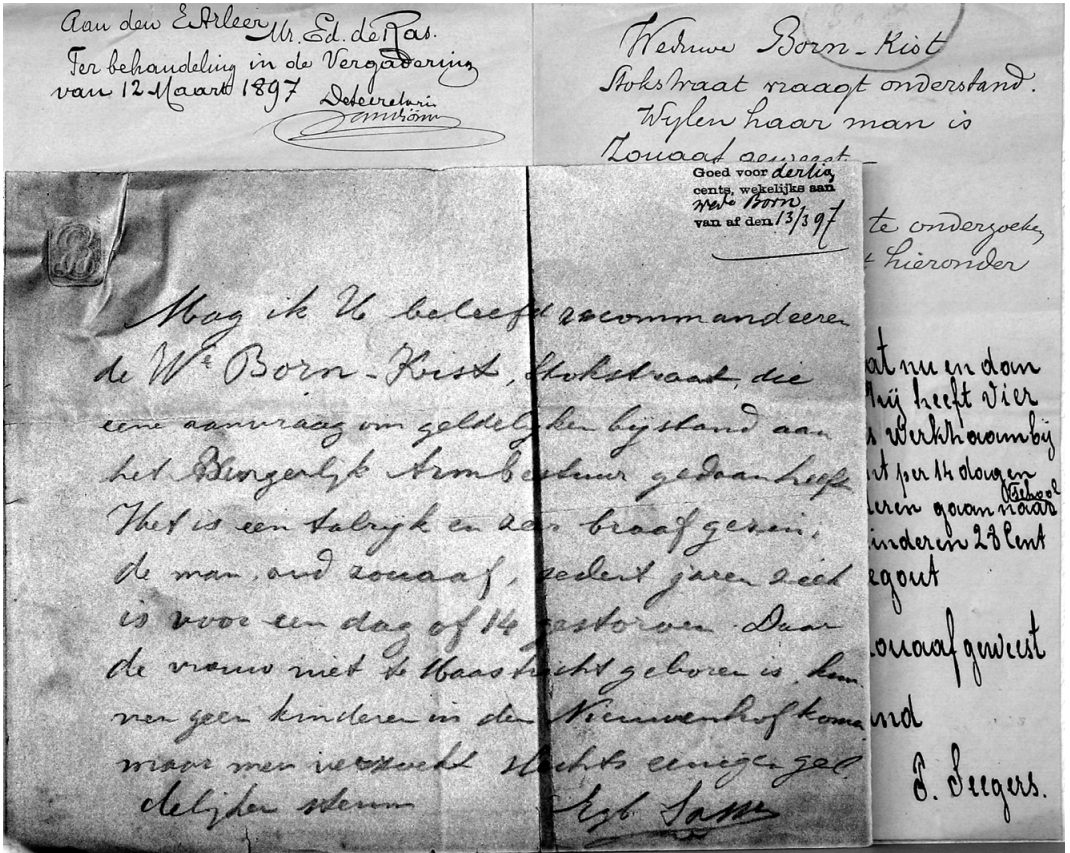 Aan den EArheer
Mr. Ed. de Ras.
Ter behandeling in de Vergadering
van 12 Maart 1897
De secretaris
Weduwe Born-Kist
Stokstraat vraagt onderstand.
Wylen haar man is
Zouaaf geweest
te onderzoeken
hieronder
at nu en dan
hij heeft vier
s werkzaam bij
nt per 14 dagen
school
eren gaan naar
inderen 28 Cent
egout
ouaaf geweest
and
P. Seegers.
Goed voor dertig
cents, wekelijks aan
wede Born
van af den 13/3 97
Mag ik U beleefd recommandeeren
de We Born-Kist, Stokstraat, die
eene aanvraag om geldelyken bystand aan
het Burgerlyk Armbestuur gedaan heeft
Het is een talryk en zeer braaf gezin;
de man, oud zouaaf, sedert jaren ziek
is voor een dag of 14 gestorven. Daar
de vrouw niet te Maastricht geboren is, kun
nen geen kinderen in den Nieuwenhof komen
maar men verzoekt slechts eenigen gel
delyken steun